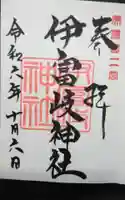 奉拝
伊富岐神社
令和六年十月六日